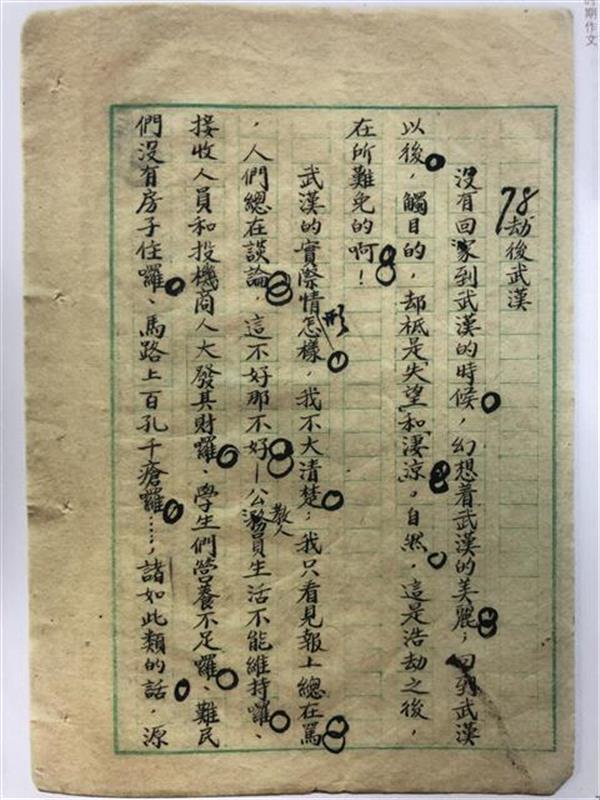 時期作文
78
劫後武漢
沒有回家到武漢的時候，幻想着武漢的美麗；回到武漢
以後，觸目的，却祇是失望和淒涼。自然，這是浩劫之後，
在所難免的啊！
武漢的實際情怎樣，我不大清楚；我只看見報上總在罵
形
，人們總在談論，這不好那不好—公務員生活不能維持囉、
教人
接收人員和投機商人大發其財囉、學生們營養不足囉、難民
們沒有房子住囉、馬路上百孔千瘡囉……，諸如此類的話，源